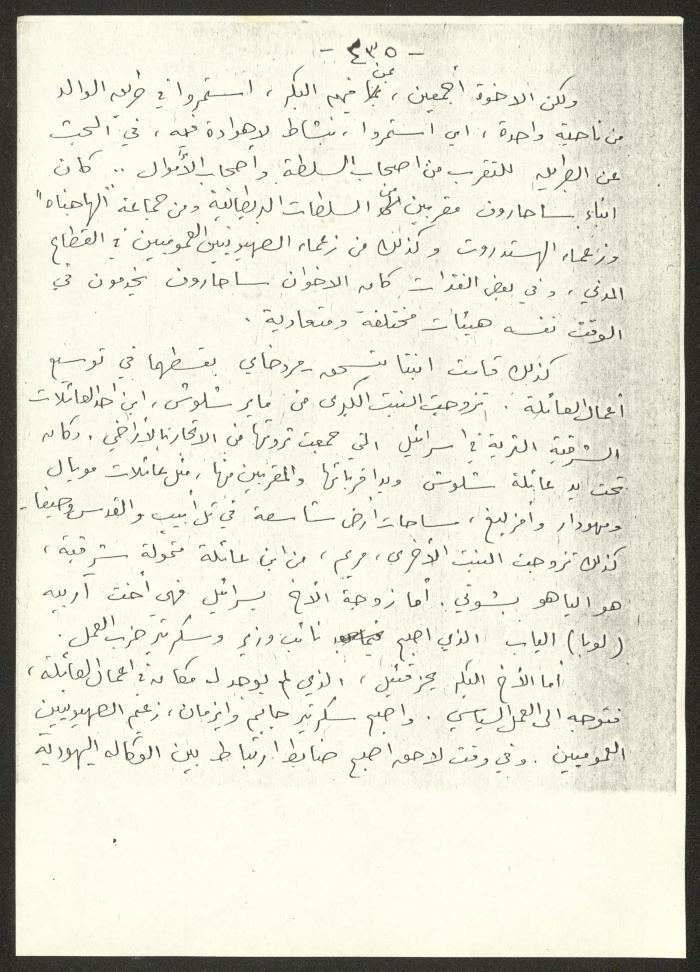 - ٤٣٥ -
ولكن الاخوة أجمعين ، بمن فيهم البكر ، استمروا في طريق الوالد
من ناحية واحدة ، اي استمروا ، بنشاط لا هوادة فيه ، في البحث
عن الطريق للتقرب من اصحاب السلطة واصحاب الأموال .. كان
ابناء ساحاروف مقربين من السلطات البريطانية ومن جماعة "الهاجناه"
وزعماء الهستدروت وكذلك من زعماء الصهيونيين العموميين في القطاع
المدني ، وفي بعض الفترات كان الاخوان ساحاروف يخدمون في
الوقت نفسه هيئات مختلفة ومتعادية .
كذلك قامت ابنتا يتسحق - مردخاي بقسطهما في توسيع
أعمال العائلة . تزوجت البنت الكبرى من ماير شلوش ، ابن أحد العائلات
الشرقية الثرية في اسرائيل التي جمعت ثروتها من الاتجار بالأراضي . وكان
تحت يد عائلة شلوش ويد اقربائها والمقربين منها ، مثل عائلات مويال
ومهودار وأمزليغ ، مساحات أرض شاسعة في تل أبيب والقدس وحيفا .
كذلك تزوجت البنت الأخرى ، مريم ، من ابن عائلة متمولة شرقية ،
هو الياهو بشوتي . أما زوجة الأخ يسرائيل فهي أخت آرييه
(لوبا) الياب الذي اصبح نائب وزير وسكرتير حزب العمل .
أما الأخ البكر يحزقئيل ، الذي لم يوجد له مكان في أعمال العائلة ،
فتوجه الى العمل السياسي . واصبح سكرتير حاييم وايزمان ، زعيم الصهيونيين
العموميين . وفي وقت لاحق اصبح ضابط ارتباط بين الوكالة اليهودية